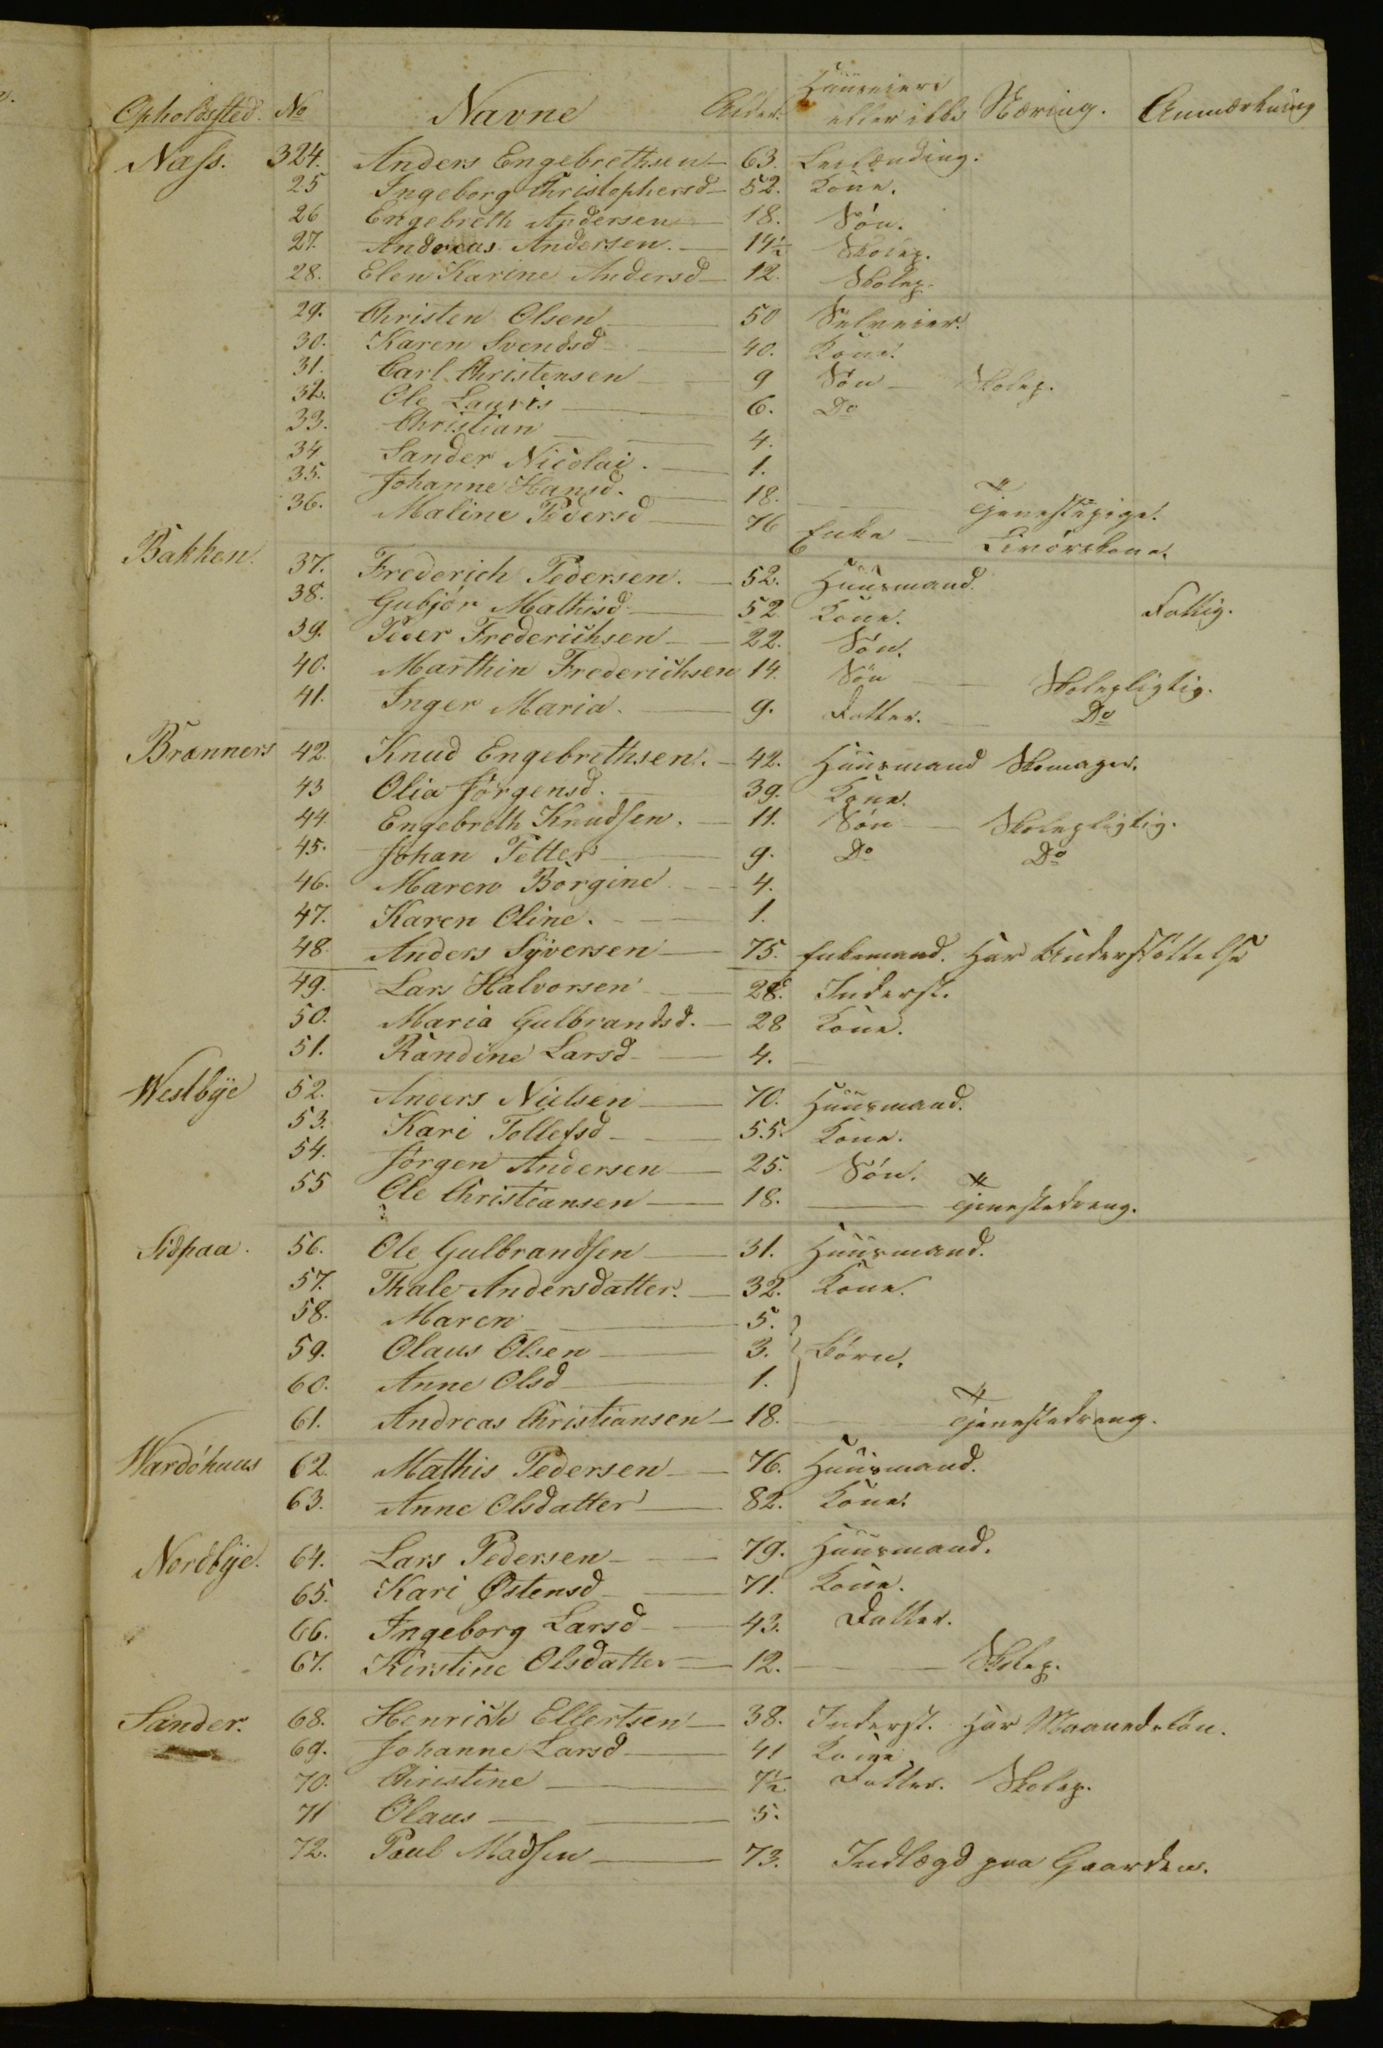 Opholdssted. No Navne Alder. Huuseiere eller ikke Næring. Anmærkning
Næss. 324. Anders Engebrethsen — 63. Leilænding.
25 Ingeborg Christophersd — 52. Kone.
26 Engebreth Andersen — 18. Søn.
27. Andreas Andersen. — 14½ Skolep.
28. Elen Karine Andersd — 12. Skolep.
29. Christen Olsen — 50 Selveier.
30. Karen Svendsd — 40. Kone.
31. Carl Christensen — 9 Søn — Skolep.
32. Ole Lauris — 6. Do
33. Christian — 4.
34 Sander Nicolai. — 1.
35. Johanne Hansd. — 18. — Tjenestepige.
36. Maline Pedersd — 76 Enke — Livørskone.
Bakken. 37. Frederich Pedersen. — 52. Huusmand.
38. Gubjör Mathisd — 52 Kone. Fattig.
39. Peder Frederichsen — 22. Søn.
40. Marthin Frederichsen 14. Søn — Skolepligtig.
41. Inger Maria. — 9. Datter. — Do
Brænners 42. Knud Engebrethsen. — 42. Huusmand Skomager.
43 Olia Jörgensd. — 39. Kone.
44 Engebreth Knudsen. — 11. Søn — Skolepligtig.
45. Johan Petter — 9. Do Do
46. Maren Börgine — 4.
47. Karen Oline. — 1.
48. Anders Syversen — 75. Enkemand. Har Understöttelse
49. Lars Halvorsen — 28. Inderst.
50. Maria Gulbrandsd. — 28 Kone.
51. Randine Larsd — 4. —
Westbye 52. Anders Nielsen — 70. Huusmand.
53. Kari Tollefsd — 55. Kone.
54. Jörgen Andersen — 25. Søn.
55 Ole Christiansen — 18. — Tjenestedreng.
Sidpaa. 56. Ole Gulbrandsen — 31. Huusmand.
57. Thale Andersdatter. — 32. Kone.
58. Maren — 5.
59. Olaus Olsen — 3. } Børn.
60. Anne Olsd — 1.
61. Andreas Christiansen — 18. — Tjenestedreng.
Wardöhuus 62. Mathis Pedersen — 76. Huusmand.
63. Anne Olsdatter — 82. Kone.
Nordbye. 64. Lars Pedersen — 79. Huusmand.
65. Kari Østensd — 71. Kone.
66. Ingeborg Larsd — 43. Datter.
67. Kirstine Olsdatter — 12. — Skolep.
Sander. 68. Henrich Ellertsen — 38. Inderst. Har Maanedslön.
69. Johanne Larsd — 41 Kone
70. Christine — 7½ Datter. Skolep.
71 Olaus — 5.
72. Paul Madsen — 73. Indlagd paa Gaarden.